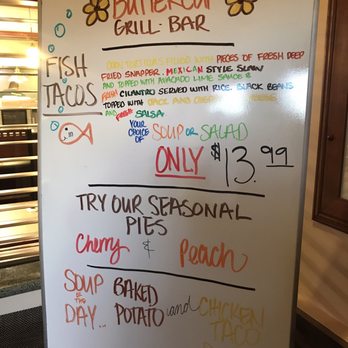 BUTTERCUP
GRILL · BAR
FISH
TACOS
CORN TORTILLAS FILLED WITH PIECES OF FRESH DEEP
FRIED SNAPPER. MEXICAN STYLE SLAW
AND TOPPED WITH AVOCADO LIME SAUCE &
FRESH CILANTRO SERVED WITH RICE, BLACK BEANS
TOPPED WITH JACK AND CHEDDAR
AND FRESH SALSA.
YOUR
CHOICE
OF
SOUP OR SALAD
ONLY $13.99
TRY OUR SEASONAL
PIES
Cherry & Peach
SOUP
OF THE
DAY...
BAKED
POTATO
and
CHICKEN
TACO